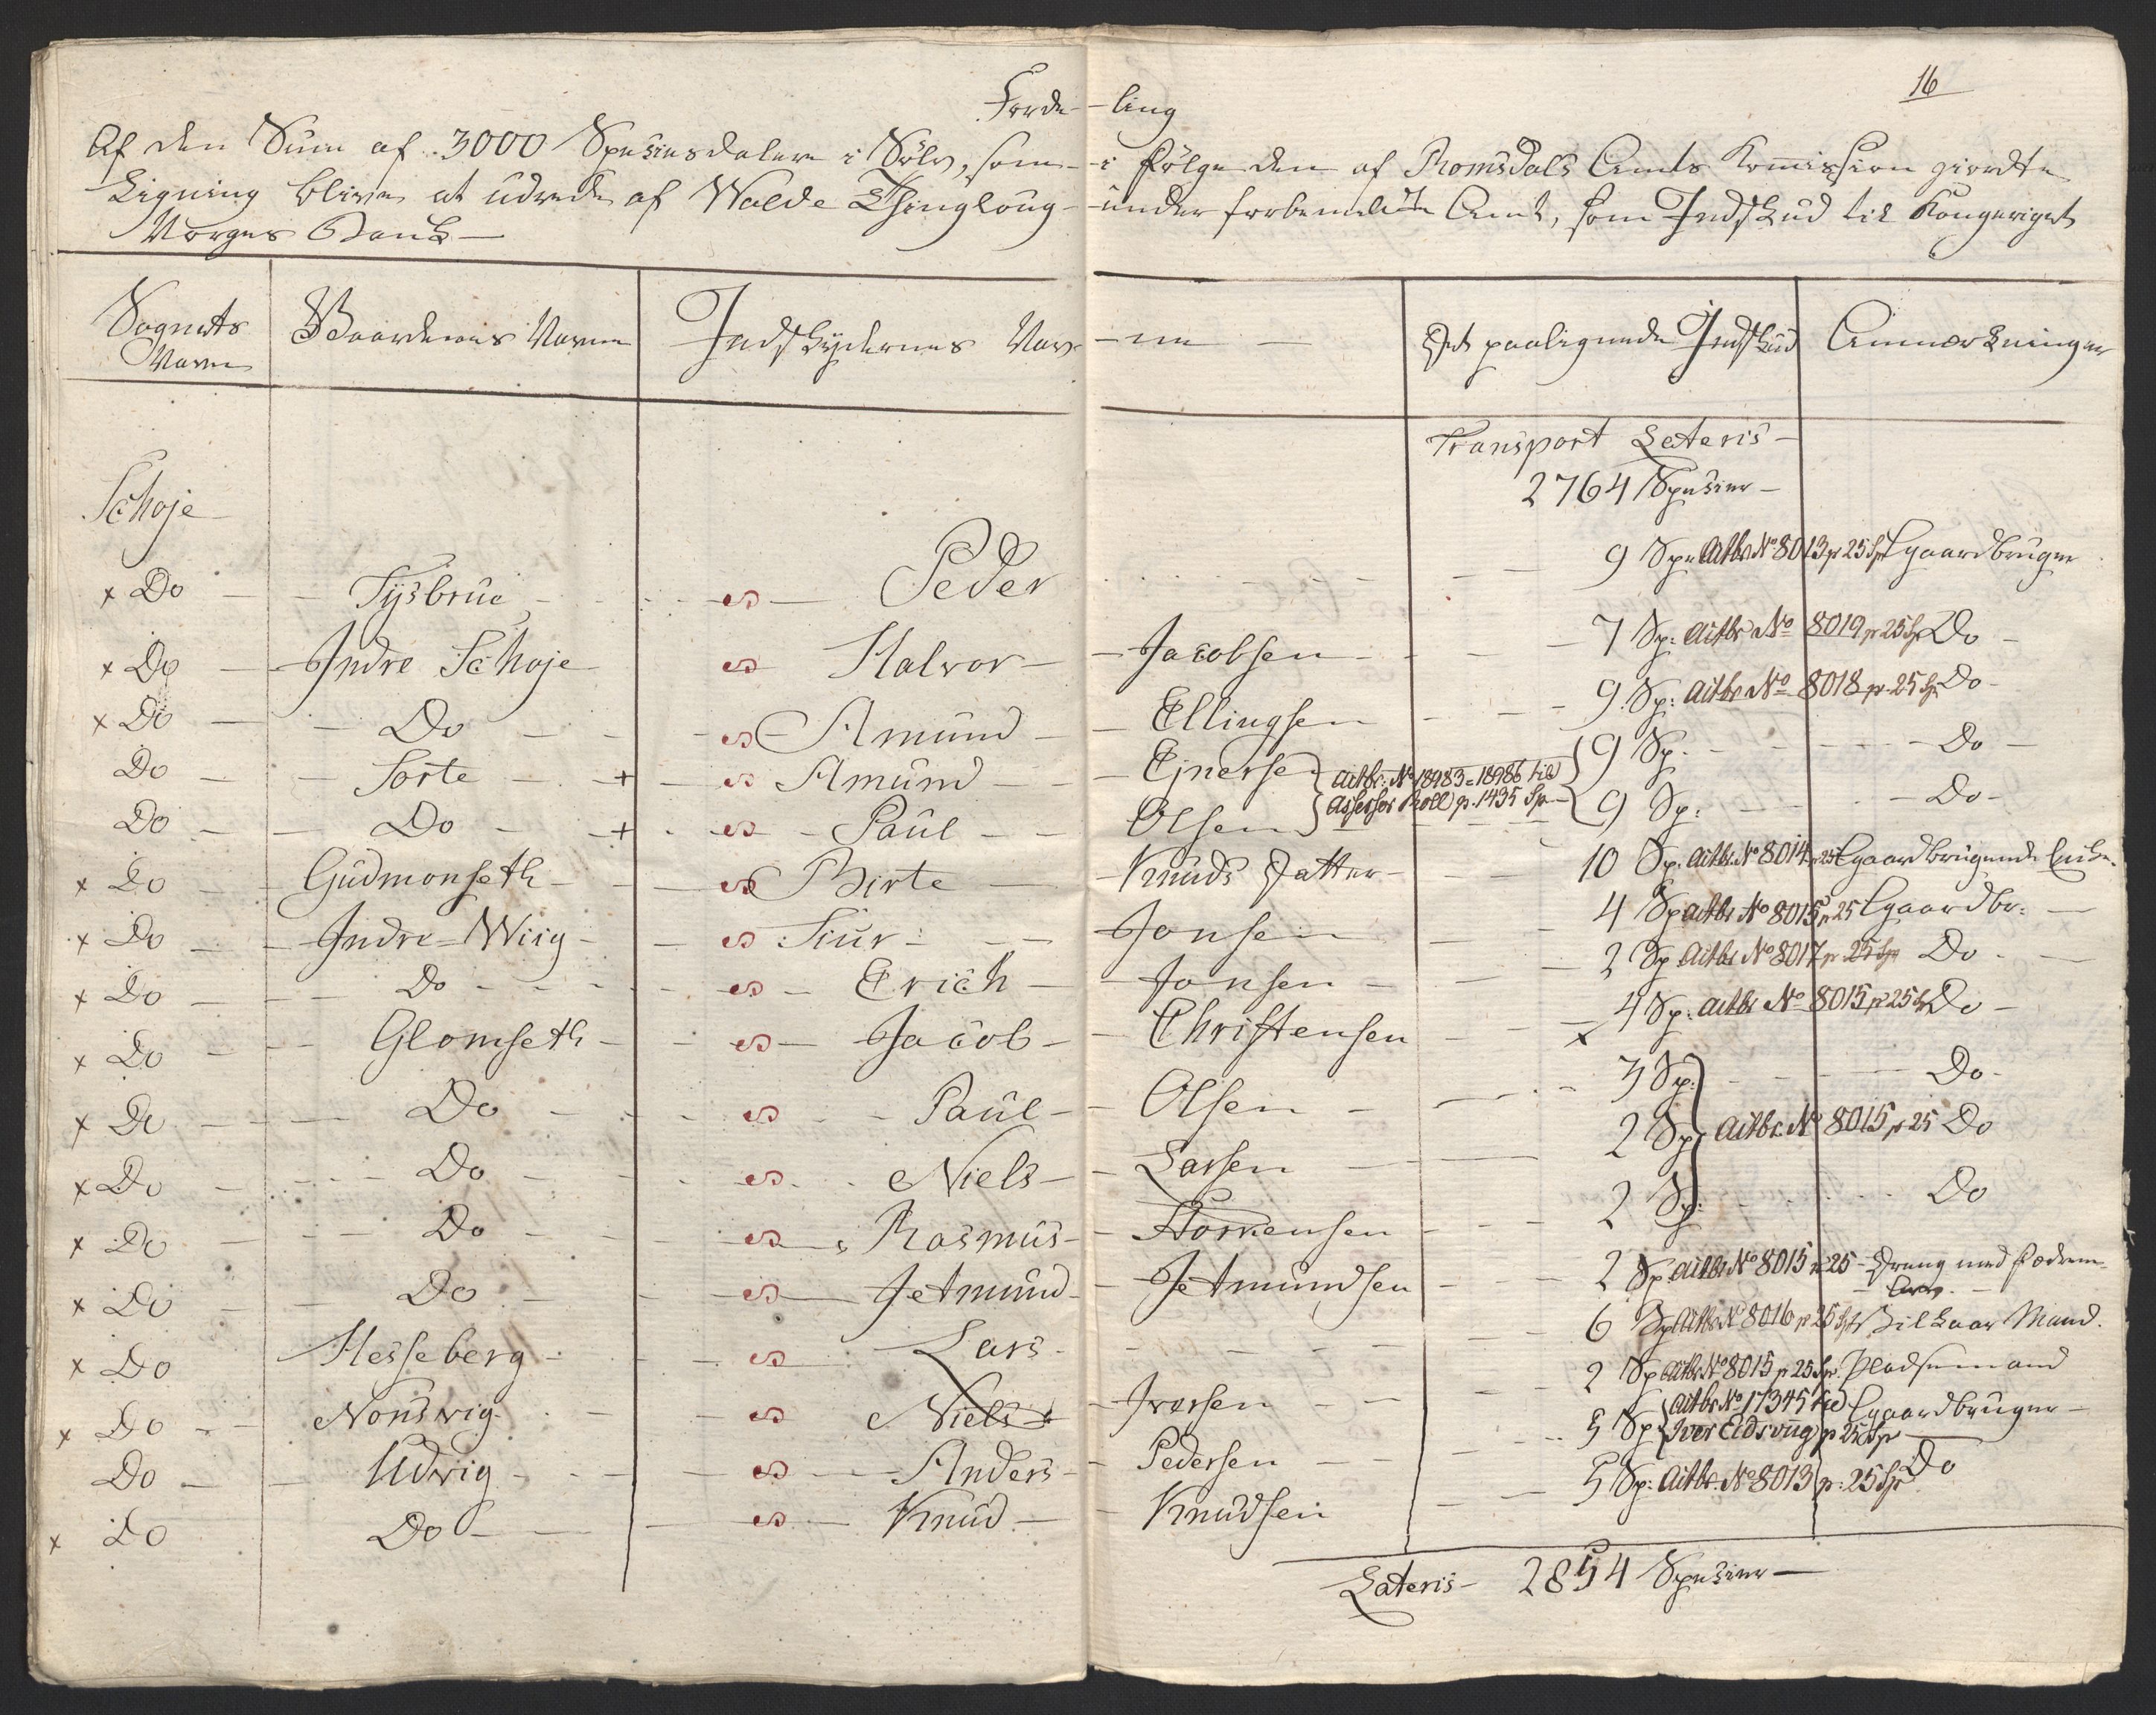 16
Forde- -ling
Af den Sum af 3000 Speciesdalere i Sölv, som- -i fölge den af Romsdals Amts Komission giordte
Ligning bliver at udrede af Wolde Thinglaug- -under forbemeldte Amt, som Indskud til Kongeriget
Norges Bank-
Sognets Navn Gaardenes Navne Indskydernes Nav- -ne - Det paalignede Indskud Anmærkninger
Transport Lateris-
2764 Specier-
Schoje
x Do Tysbrue Peder 9 Spe Actbr No 8013 p 25 Sp Gaardbruger
x Do Indre Schoje Halvor Jacobsen 7 Sp: Actbr No 8019 p 25 Sp Do
x Do Do Amund Ellingsen 9 Sp: Actbr No 8018 p 25 Sp Do
Do Sorte + Amund Ejnersen 9 Sp. Do
Actbr: No 18983=18986 til
Assessor Moll p. 1435 Sp
Do Do + Paul Olsen 9 Sp: Do
x Do Gudmonseth Birte Knuds Datter 10 Sp. Actbr No 8014 p 25 Gaardbrugende Enke
x Do Indre=Wiig Siur Jonsen 4 Sp Actbr No 8015 p 25 Gaardbr:
x Do Do Erich Jonsen 2 Sp Actbr No 8017 p 25 Sp Do
x Do Glomseth Jacob Christensen x 4 Sp. Actbr No 8015 p 25 Sp Do
x Do Do Paul Olsen 3 Sp: Do
x Do Do Niels Larsen 2 Sp Actbr No 8015 p 25 Do
x Do Do Rasmus Storkensen 2 Sp: Do
x Do Do Jetmund Jetmundsen 2 Sp. Actbr No 8015 p 25 - Dreng med Fædrene
Arv.
x Do Hesseberg Lars 6 Sp Actbr No 8016 p 25 Sp Vilkaar Mand.
x Do Nonsvig Niels Iversen 2 Sp Actbr No 8015 p 25 Sp. Pladsemand
Do Udvig Anders Pedersen 5 Sp Actbr No 17345 til Gaardbruger
Iver Eidsvug p 25 Sp
x Do Do Knud Knudsen 5 Sp. Actbr. No 8013 p: 25 Sp Do
Lateris- 2854 Specier-